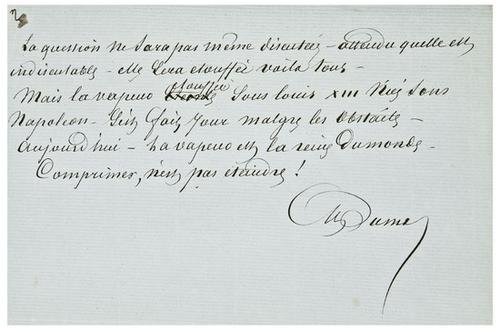 2
La question ne sera pas même discutée – attendu quelle est
indiscutable – elle sera etouffée voila tout –
Mais la vapeur etouffée sous louis XIII Niée sous
Napoleon – S'est fait jour malgre les obstacles –
Aujourd'hui – la vapeur est la reine du monde –
Comprimer, n'est pas eteindre !
Alx Dumas